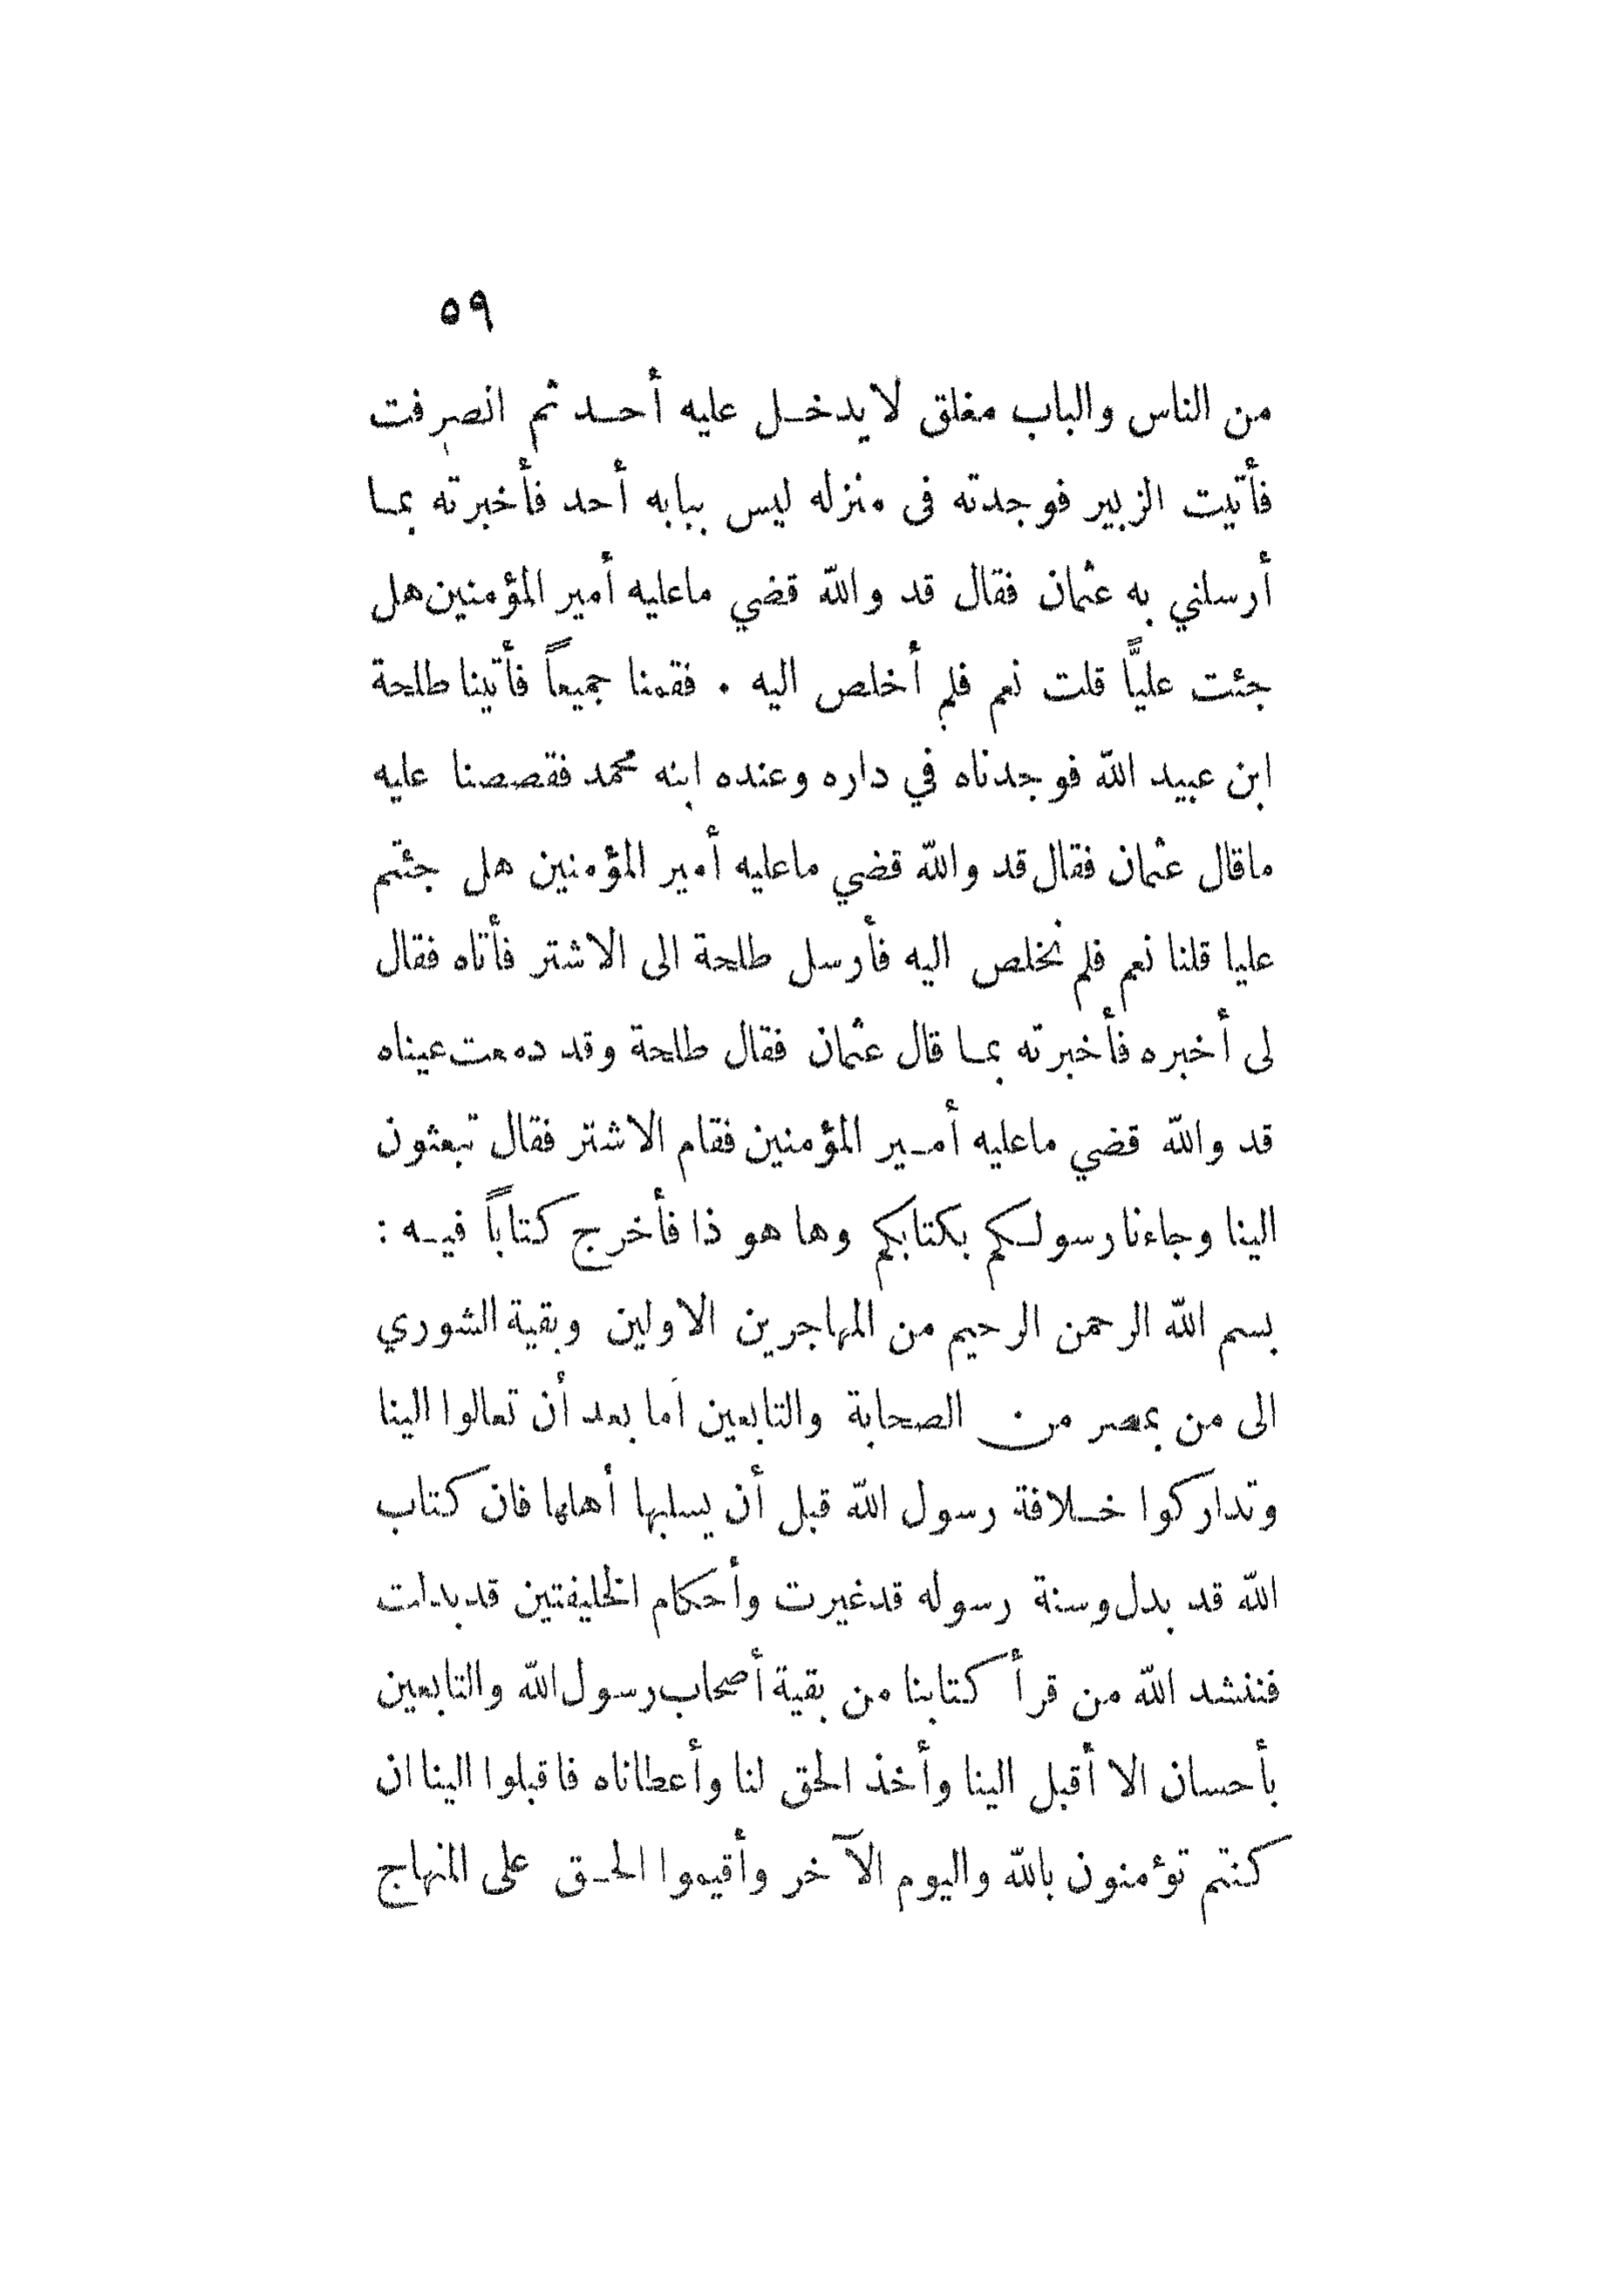 ٥٩
من الناس والباب مغلق لا يدخل عليه أحد ثم انصرفت
فأتيت الزبير فوجدته فى منزله ليس ببابه أحد فأخبرته بما
أرسلني به عثمان فقال قد والله قضي ماعليه أمير المؤمنين هل
جئت علياً قلت نعم فلم أخلص اليه . فقمنا جميعاً فأتينا طلحة
ابن عبيد الله فوجدناه في داره وعنده ابنه محمد فقصصنا عليه
ماقال عثمان فقال قد والله قضي ماعليه أمير المؤمنين هل جئتم
عليا قلنا نعم فلم نخلص اليه فأرسل طلحة الى الاشتر فأتاه فقال
لى أخبره فأخبرته بما قال عثمان فقال طلحة وقد دمعت عيناه
قد والله قضي ماعليه أمير المؤمنين فقام الاشتر فقال تبعثون
الينا وجاءنا رسولكم بكتابكم وها هو ذا فأخرج كتاباً فيه :
بسم الله الرحمن الرحيم من المهاجرين الاولين وبقية الشوري
الى من بمصر من الصحابة والتابعين أما بعد أن تعالوا الينا
وتداركوا خلافة رسول الله قبل أن يسلبها أهلها فان كتاب
الله قد بدل وسنة رسوله قد غيرت وأحكام الخليفتين قد بدلت
فننشد الله من قرأ كتابنا من بقية أصحاب رسول الله والتابعين
بأحسان الا أقبل الينا وأخذ الحق لنا وأعطاناه فاقبلوا الينا ان
كنتم تؤمنون بالله واليوم الآخر وأقيموا الحق على المنهاج